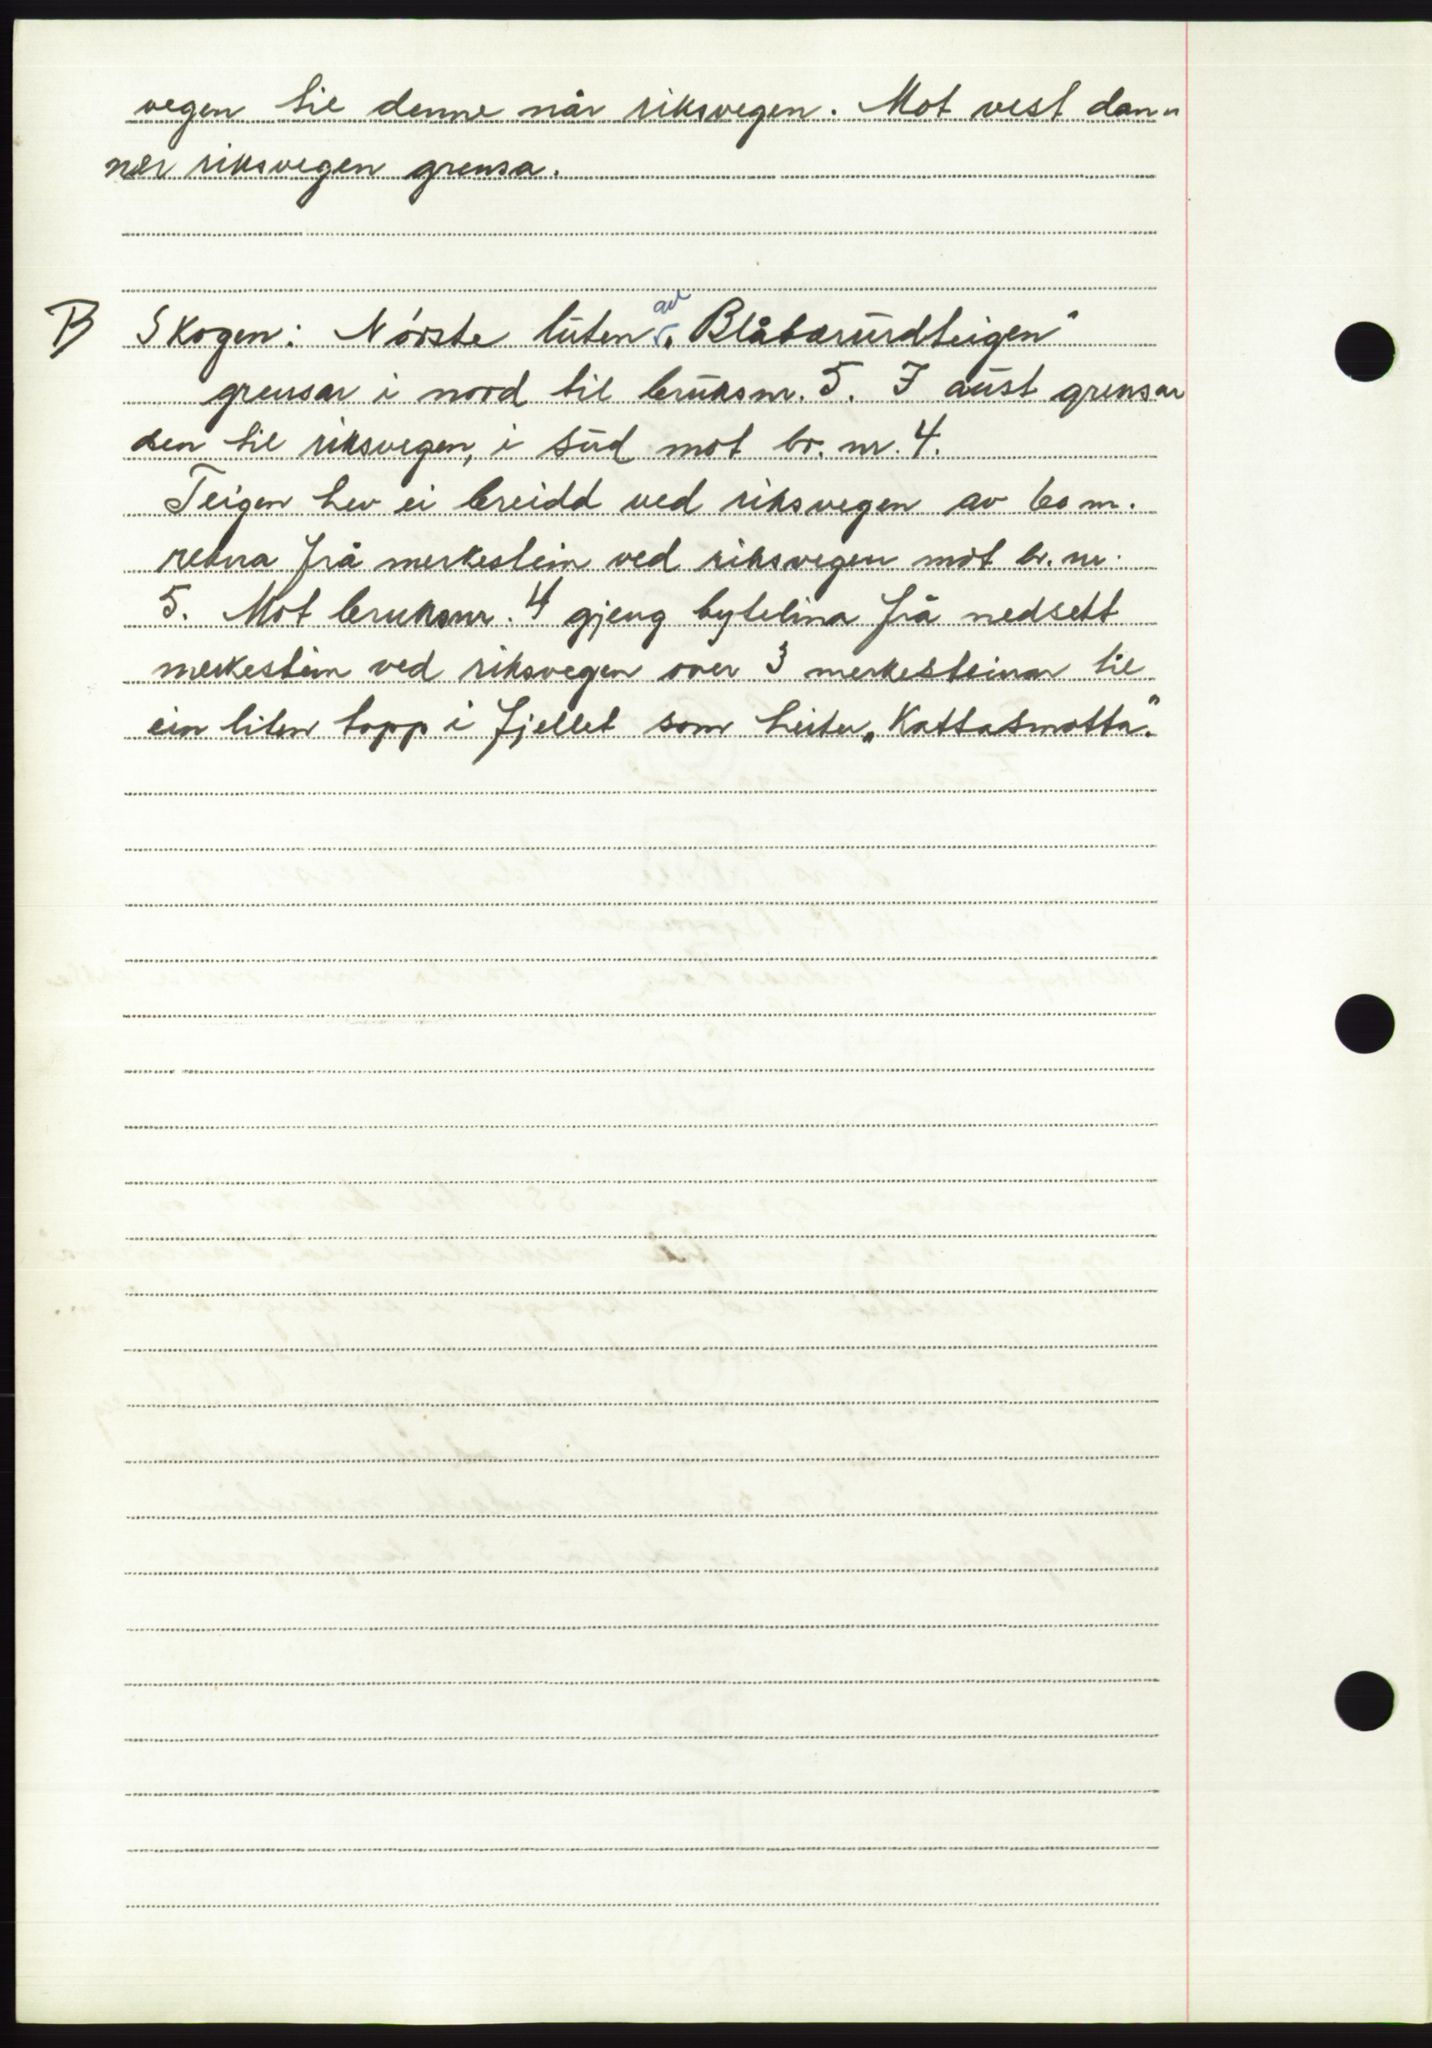 vegen til denne når riksvegen. Mot vest dan-
ner riksvegen grensa.
B Skogen: Nørste luten av „Blåbærurdteigen"
grensar i nord til bruksnr. 5. I aust grensar
den til riksvegen, i sud mot br. nr. 4.
Teigen hev ei breidd ved riksvegen av 60 m.
rekna frå merkestein ved riksvegen mot br. nr.
5. Mot bruksnr. 4 gjeng bytelina frå nedsett
merkestein ved riksvegen over 3 merkesteinar til
ein liten topp i fjellet som heiter „Kattasmotta".